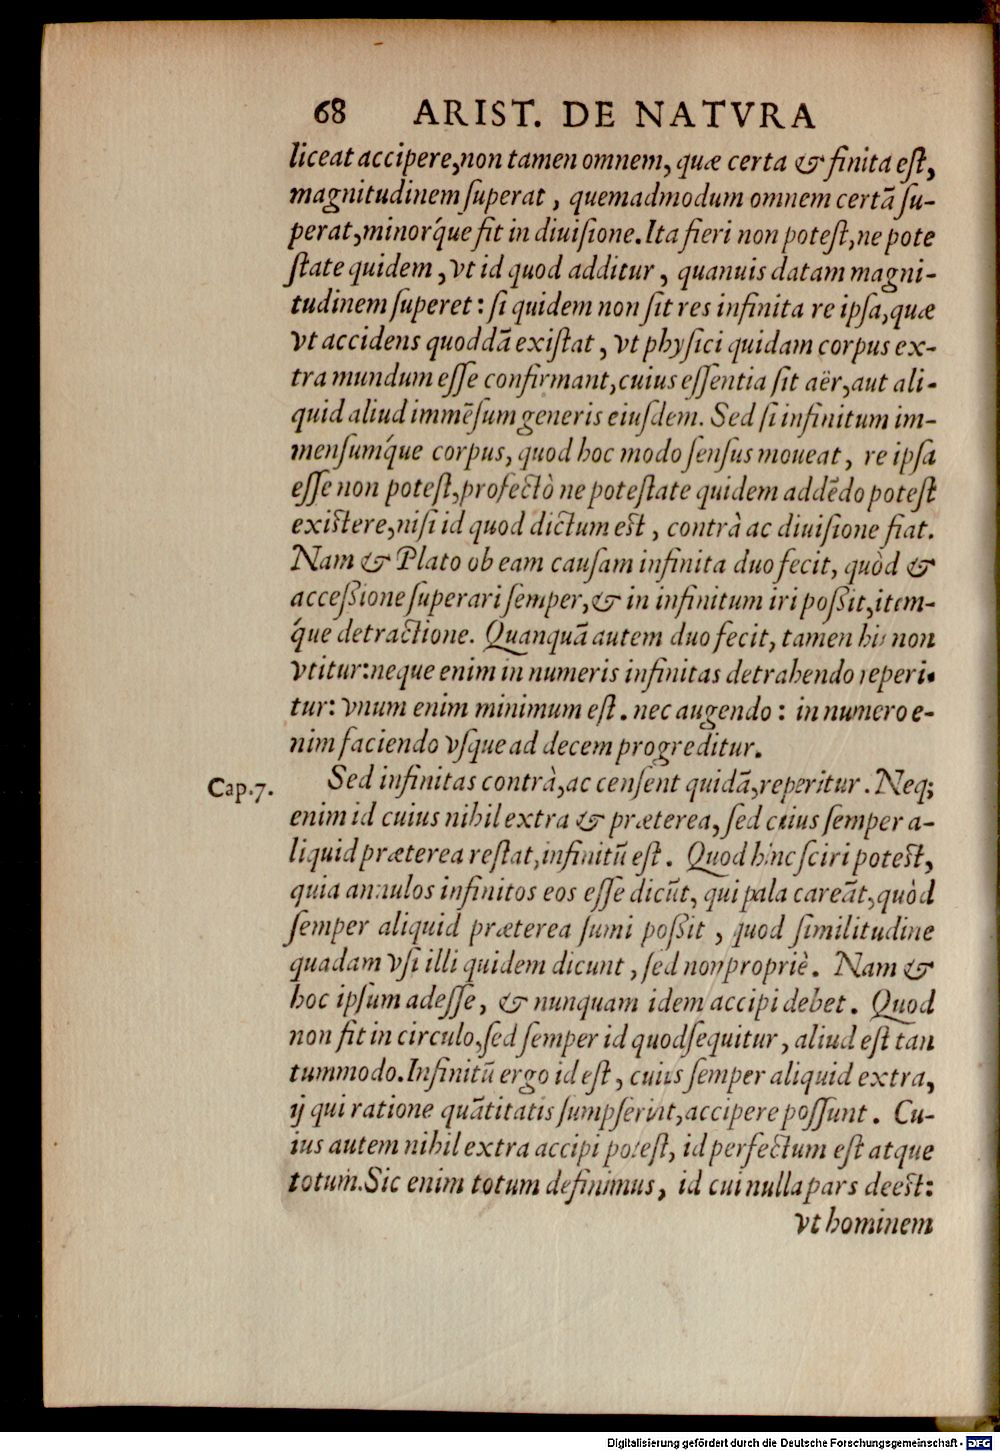 68 ARIST. DE NATVRA
liceat accipere, non tamen omnem, quæ certa & finita eſt,
magnitudinem ſuperat, quemadmodum omnem certã ſu-
perat, minorq́ue fit in diuiſione. Ita fieri non poteſt, ne pote
ſtate quidem, vt id quod additur, quanuis datam magni-
tudinem ſuperet: ſi quidem non ſit res infinita re ipſa, quæ
vt accidens quoddã exiſtat, vt phyſici quidam corpus ex-
tra mundum eſſe confirmant, cuius eſſentia ſit aër, aut ali-
quid aliud immẽſum generis eiuſdem. Sed ſi infinitum im-
menſumq́ue corpus, quod hoc modo ſenſus moueat, re ipſa
eſſe non poteſt, profectò ne poteſtate quidem addẽdo poteſt
exiſtere, niſi id quod dictum eſt, contrà ac diuiſione fiat.
Nam & Plato ob eam cauſam infinita duo fecit, quòd &
acceßione ſuperari ſemper, & in infinitum iri poßit, item-
q́ue detractione. Quanquã autem duo fecit, tamen his non
vtitur: neque enim in numeris infinitas detrahendo reperi-
tur: vnum enim minimum eſt. nec augendo: in numero e-
nim faciendo vſque ad decem progreditur.
Cap. 7. Sed infinitas contrà, ac cenſent quidã, reperitur. Neq;
enim id cuius nihil extra & præterea, ſed cuius ſemper a-
liquid præterea reſtat, infinitũ eſt. Quod hinc ſciri poteſt,
quia annulos infinitos eos eſſe dicũt, qui pala careãt, quòd
ſemper aliquid præterea ſumi poßit, quod ſimilitudine
quadam vſi illi quidem dicunt, ſed non propriè. Nam &
hoc ipſum adeſſe, & nunquam idem accipi debet. Quod
non fit in circulo, ſed ſemper id quod ſequitur, aliud eſt tan
tummodo. Infinitũ ergo id eſt, cuius ſemper aliquid extra,
ij qui ratione quãtitatis ſumpſerint, accipere poſſunt. Cu-
ius autem nihil extra accipi poteſt, id perfectum eſt atque
totum. Sic enim totum definimus, id cui nulla pars deeſt:
vt hominem
Digitalisierung gefördert durch die Deutsche Forschungsgemeinschaft - DFG